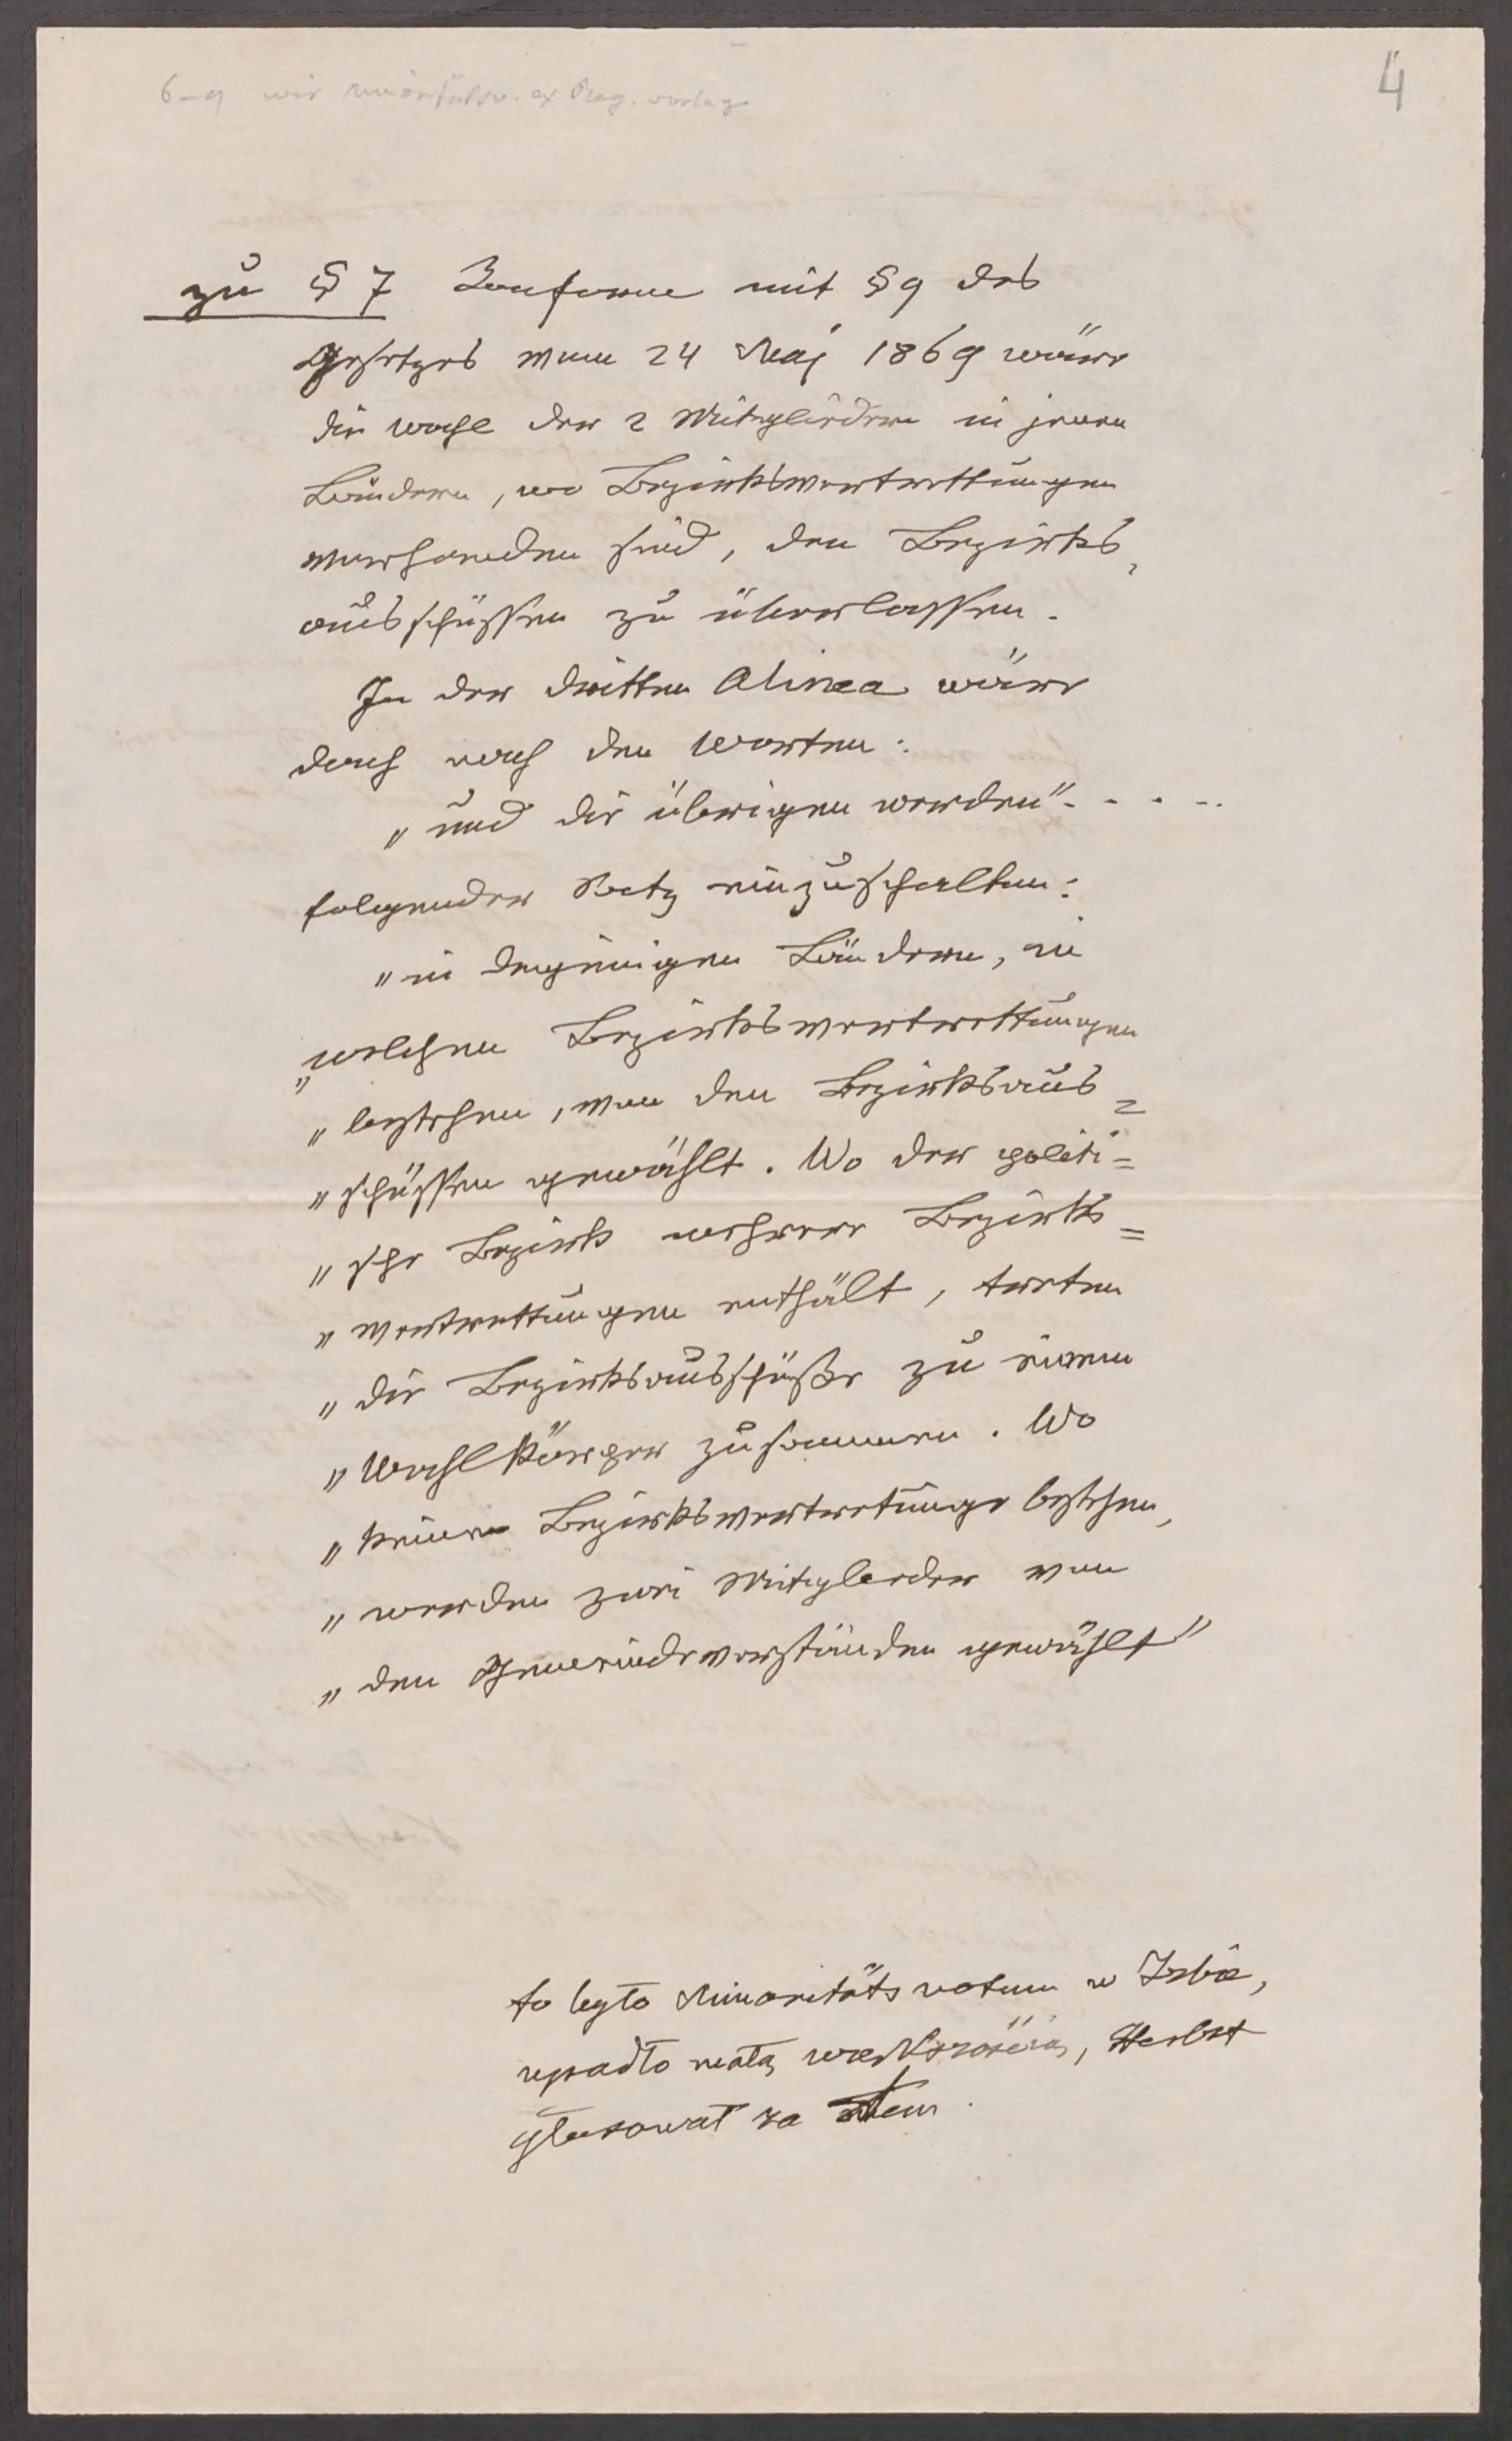 4
zu § 7 Conforme mit § 9 des
Gesetzes vom 24 Maj 1869 wäre
die Wahl der 2 Mitgliedern in jenen
Ländern, wo Bezirksvertrettungen
vorhanden sind, den Bezirks-
ausschüssen zu überlassen.
In der dritten Alinea wäre
doch nach den Worten:
"und die übrigen werden" - . . . ..
folgender Satz einzuschalten:
"in denjenigen Ländern, in
"welchen Bezirksvertrettungen
"bestehen, von den Bezirksaus=
"schüssen gewählt. Wo der politi=
"sche Bezirk mehrere Bezirks=
"vertrettungen enthält, treten
"die Bezirksausschüße zu einem
"Wahlkörper zusammen. Wo
"keine Bezirksvertretunge bestehen,
"werden zwei Mitglieder von
"den Gemeindevorständen gewählt"
to było Minoritäts votum w Izbie,
upadło małą większością, Herbst
głosował za tem.